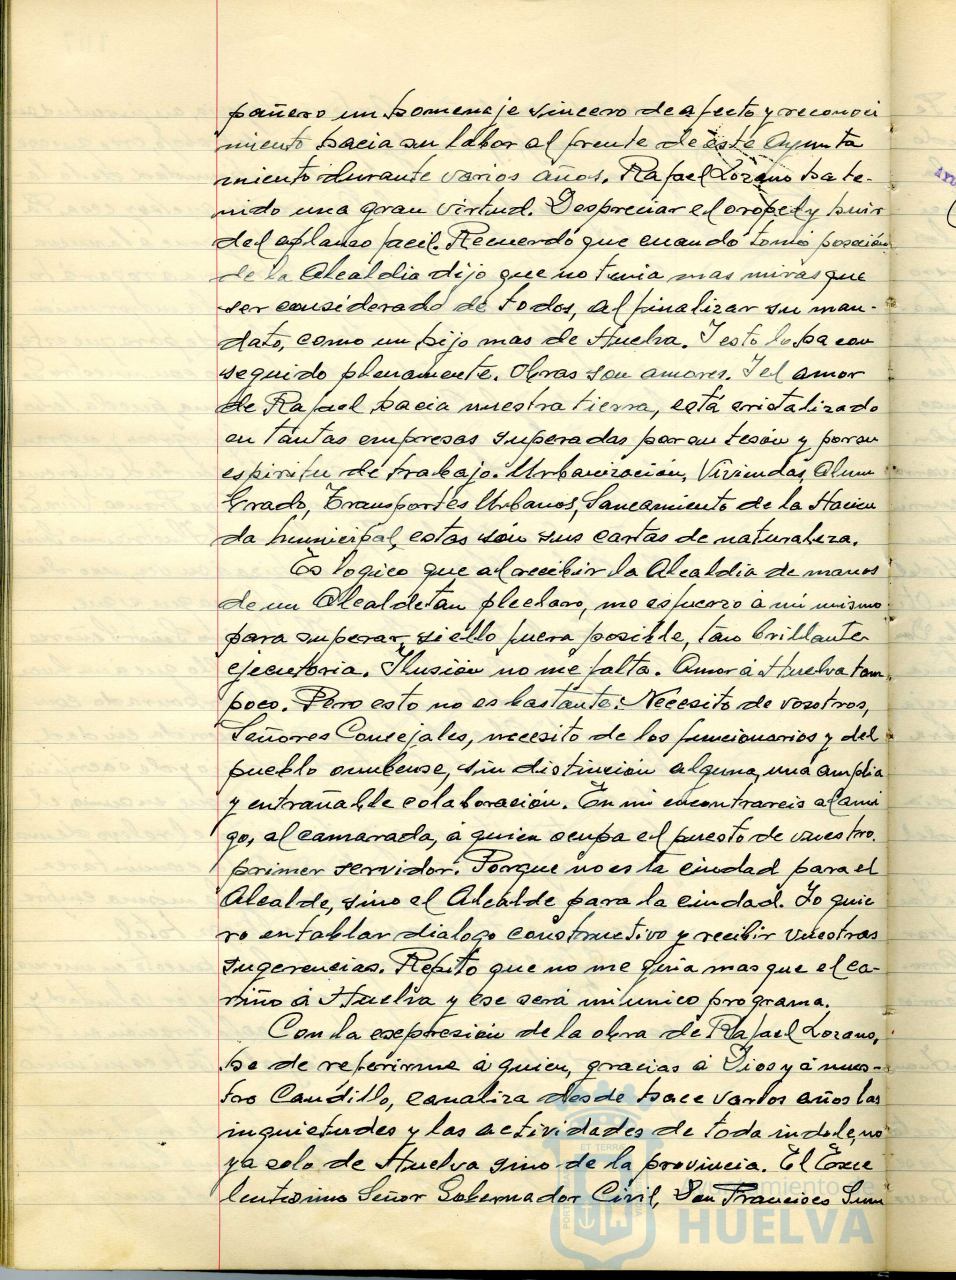 pañero un homenaje sincero de afecto y reconoci
miento hacia su labor al frente de este Ayunta
miento durante varios años. Rafael Lozano ha te-
nido una gran virtud. Despreciar el oropel y huir
del aplauso facil. Recuerdo que cuando tomó posesión
de la Alcaldia dijo que no tenia mas miras que
ser considerado de todos, al finalizar su man-
dato, como un hijo mas de Huelva. Y esto lo ha con
seguido plenamente. Obras son amores. Y el amor
de Rafael hacia nuestra tierra, está cristalizado
en tantas empresas superadas por su tesón y por su
espiritu de trabajo. Urbanización, Viviendas, Alum
brado, Transportes Urbanos, Saneamiento de la Hacien
da Municipal, estas són sus cartas de naturaleza.
Es logico que al recibir la Alcaldia de manos
de un Alcalde tan preclaro, me esfuerzo á mi mismo
para superar, si ello fuera posible, tan brillante
ejecutoria. Ilusión no me falta. Amor á Huelva tam
poco. Pero esto no es bastante. Necesito de vosotros,
Señores Concejales, necesito de los funcionarios y del
pueblo onubense, sin distinción alguna, una amplia
y entrañable colaboración. En mi encontrareis al ami
go, al camarada, á quien ocupa el puesto de vuestro
primer servidor. Porque no es la ciudad para el
Alcalde, sino el Alcalde para la ciudad. Yo quie
ro entablar dialogo constructivo y recibir vuestras
sugerencias. Repito que no me guia mas que el ca-
riño á Huelva y ese será mi unico programa.
Con la expresión de la obra de Rafael Lozano,
he de referirme á quien, gracias á Dios y á nues-
tro Caudillo, canaliza desde hace varios años las
inquietudes y las actividades de toda indole, no
ya solo de Huelva sino de la provincia. El Exce
lentisimo Señor Gobernador Civil, Don Francisco Sum
Ayuntamiento de
HUELVA